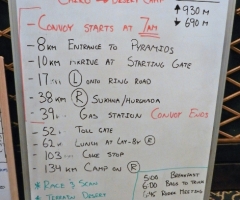 CAIRO → DESERT CAMP
↑ 930 M
↓ 690 M
CONVOY STARTS AT 7AM
- 8KM ENTRANCE TO PYRAMIDS
- 10KM ARRIVE AT STARTING GATE
- 17 L ONTO RING ROAD
- 38 KM R SUKHNA/HURGHADA
- 39 GAS STATION CONVOY ENDS
- 52 TOLL GATE
- 62KM LUNCH AT R
- 103 COKE STOP
- 134 KM CAMP ON R
* RACE 7
* DESERT
5:00 BREAKFAST
6:00 BAGS TO TRUCK
6:45 RIDER MEETING